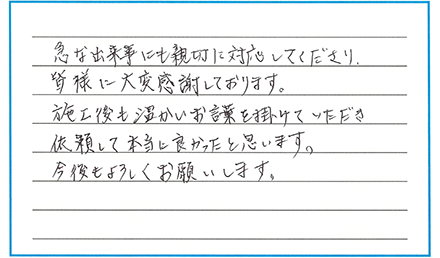 急な出来事にも親切に対応してくださり、
皆様に大変感謝しております。
施工後も温かいお言葉を掛けていただき
依頼して本当に良かったと思います。
今後もよろしくお願いします。